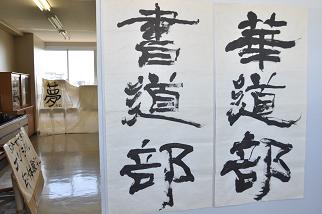 華道部
書道部
夢